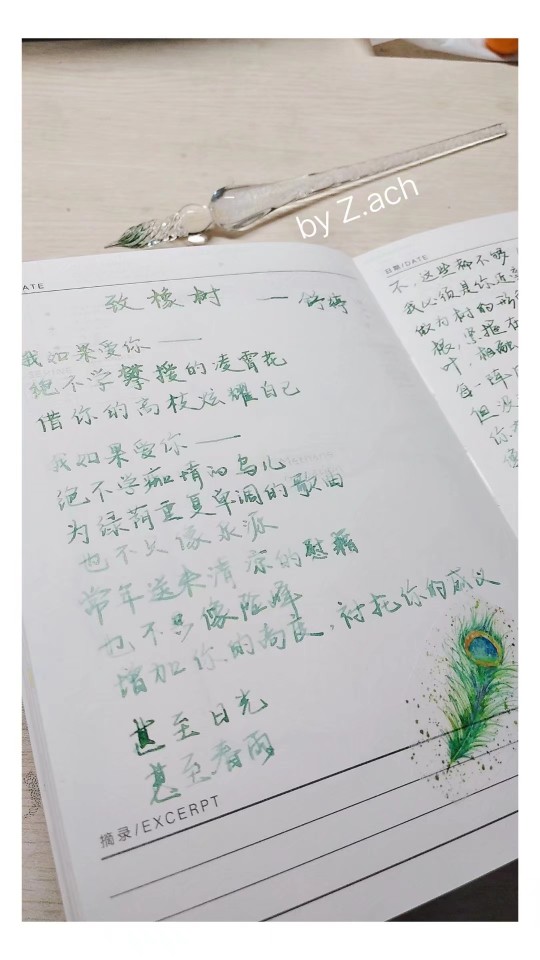 by Z.ach
DATE
致橡树 —— 舒婷
我如果爱你——
绝不学攀援的凌霄花
借你的高枝炫耀自己
我如果爱你——
绝不学痴情的鸟儿
为绿荫重复单调的歌曲
也不只像泉源
常年送来清凉的慰藉
也不只像险峰
增加你的高度，衬托你的威仪
甚至日光
甚至春雨
摘录/EXCERPT
日期/DATE
不，这些都不够
我必须是你近
做为树的形
根，紧握在
叶，相触
每一阵
但没
你